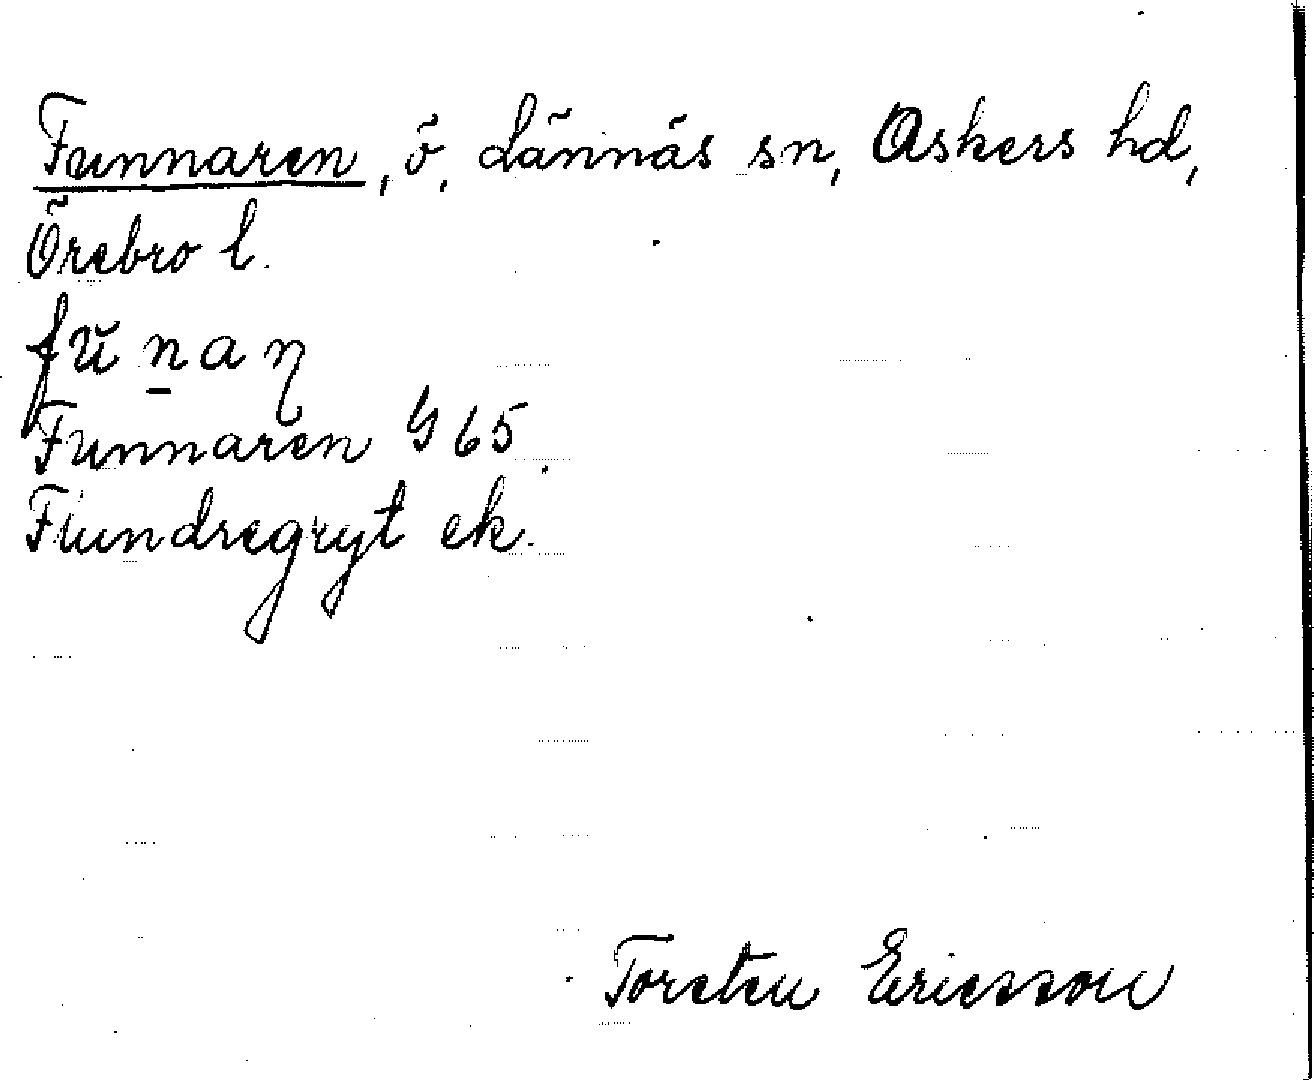 Funnaren, ö, Lännäs sn, Askers hd,
Örebro l.
fŭn̲aɳ
Funnaren G 65
Flundregryt ek.
Torsten Ericsson